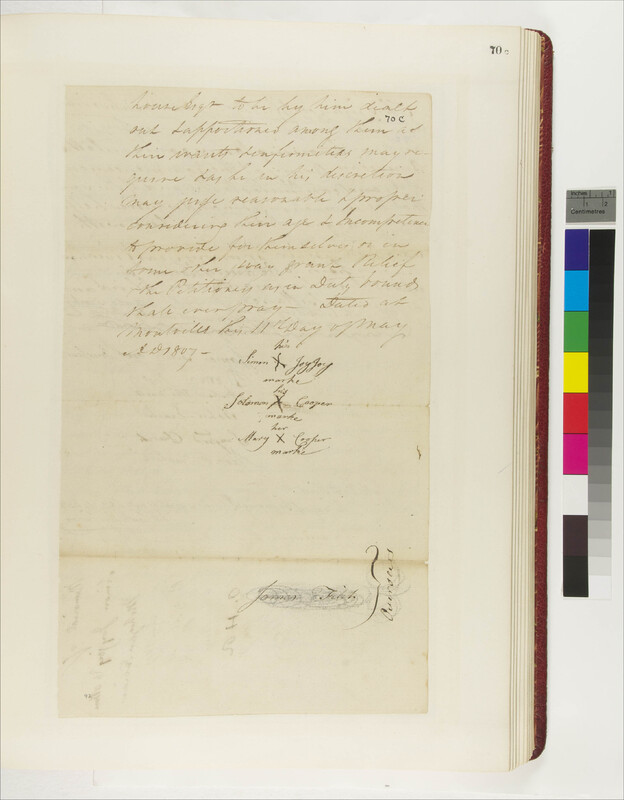 70 c
70 C
house Esqr to be by him dealt
out & apportioned among them as
their wants & infirmities may re-
quire & as he in his discretion
may judge reasonable & proper
considering their age & incompetence
to provide for themselves or in
some other way grant Relief
& the Petitioners as in Duty bound
shall ever pray — Dated at
Montville this 11th Day of May
A D 1807 —
his
Simon X JoyJoy
marke
his
Solomon X Cooper
marke
her
Mary X Cooper
marke
James Fitch
Overseers
Inches
Centimetres